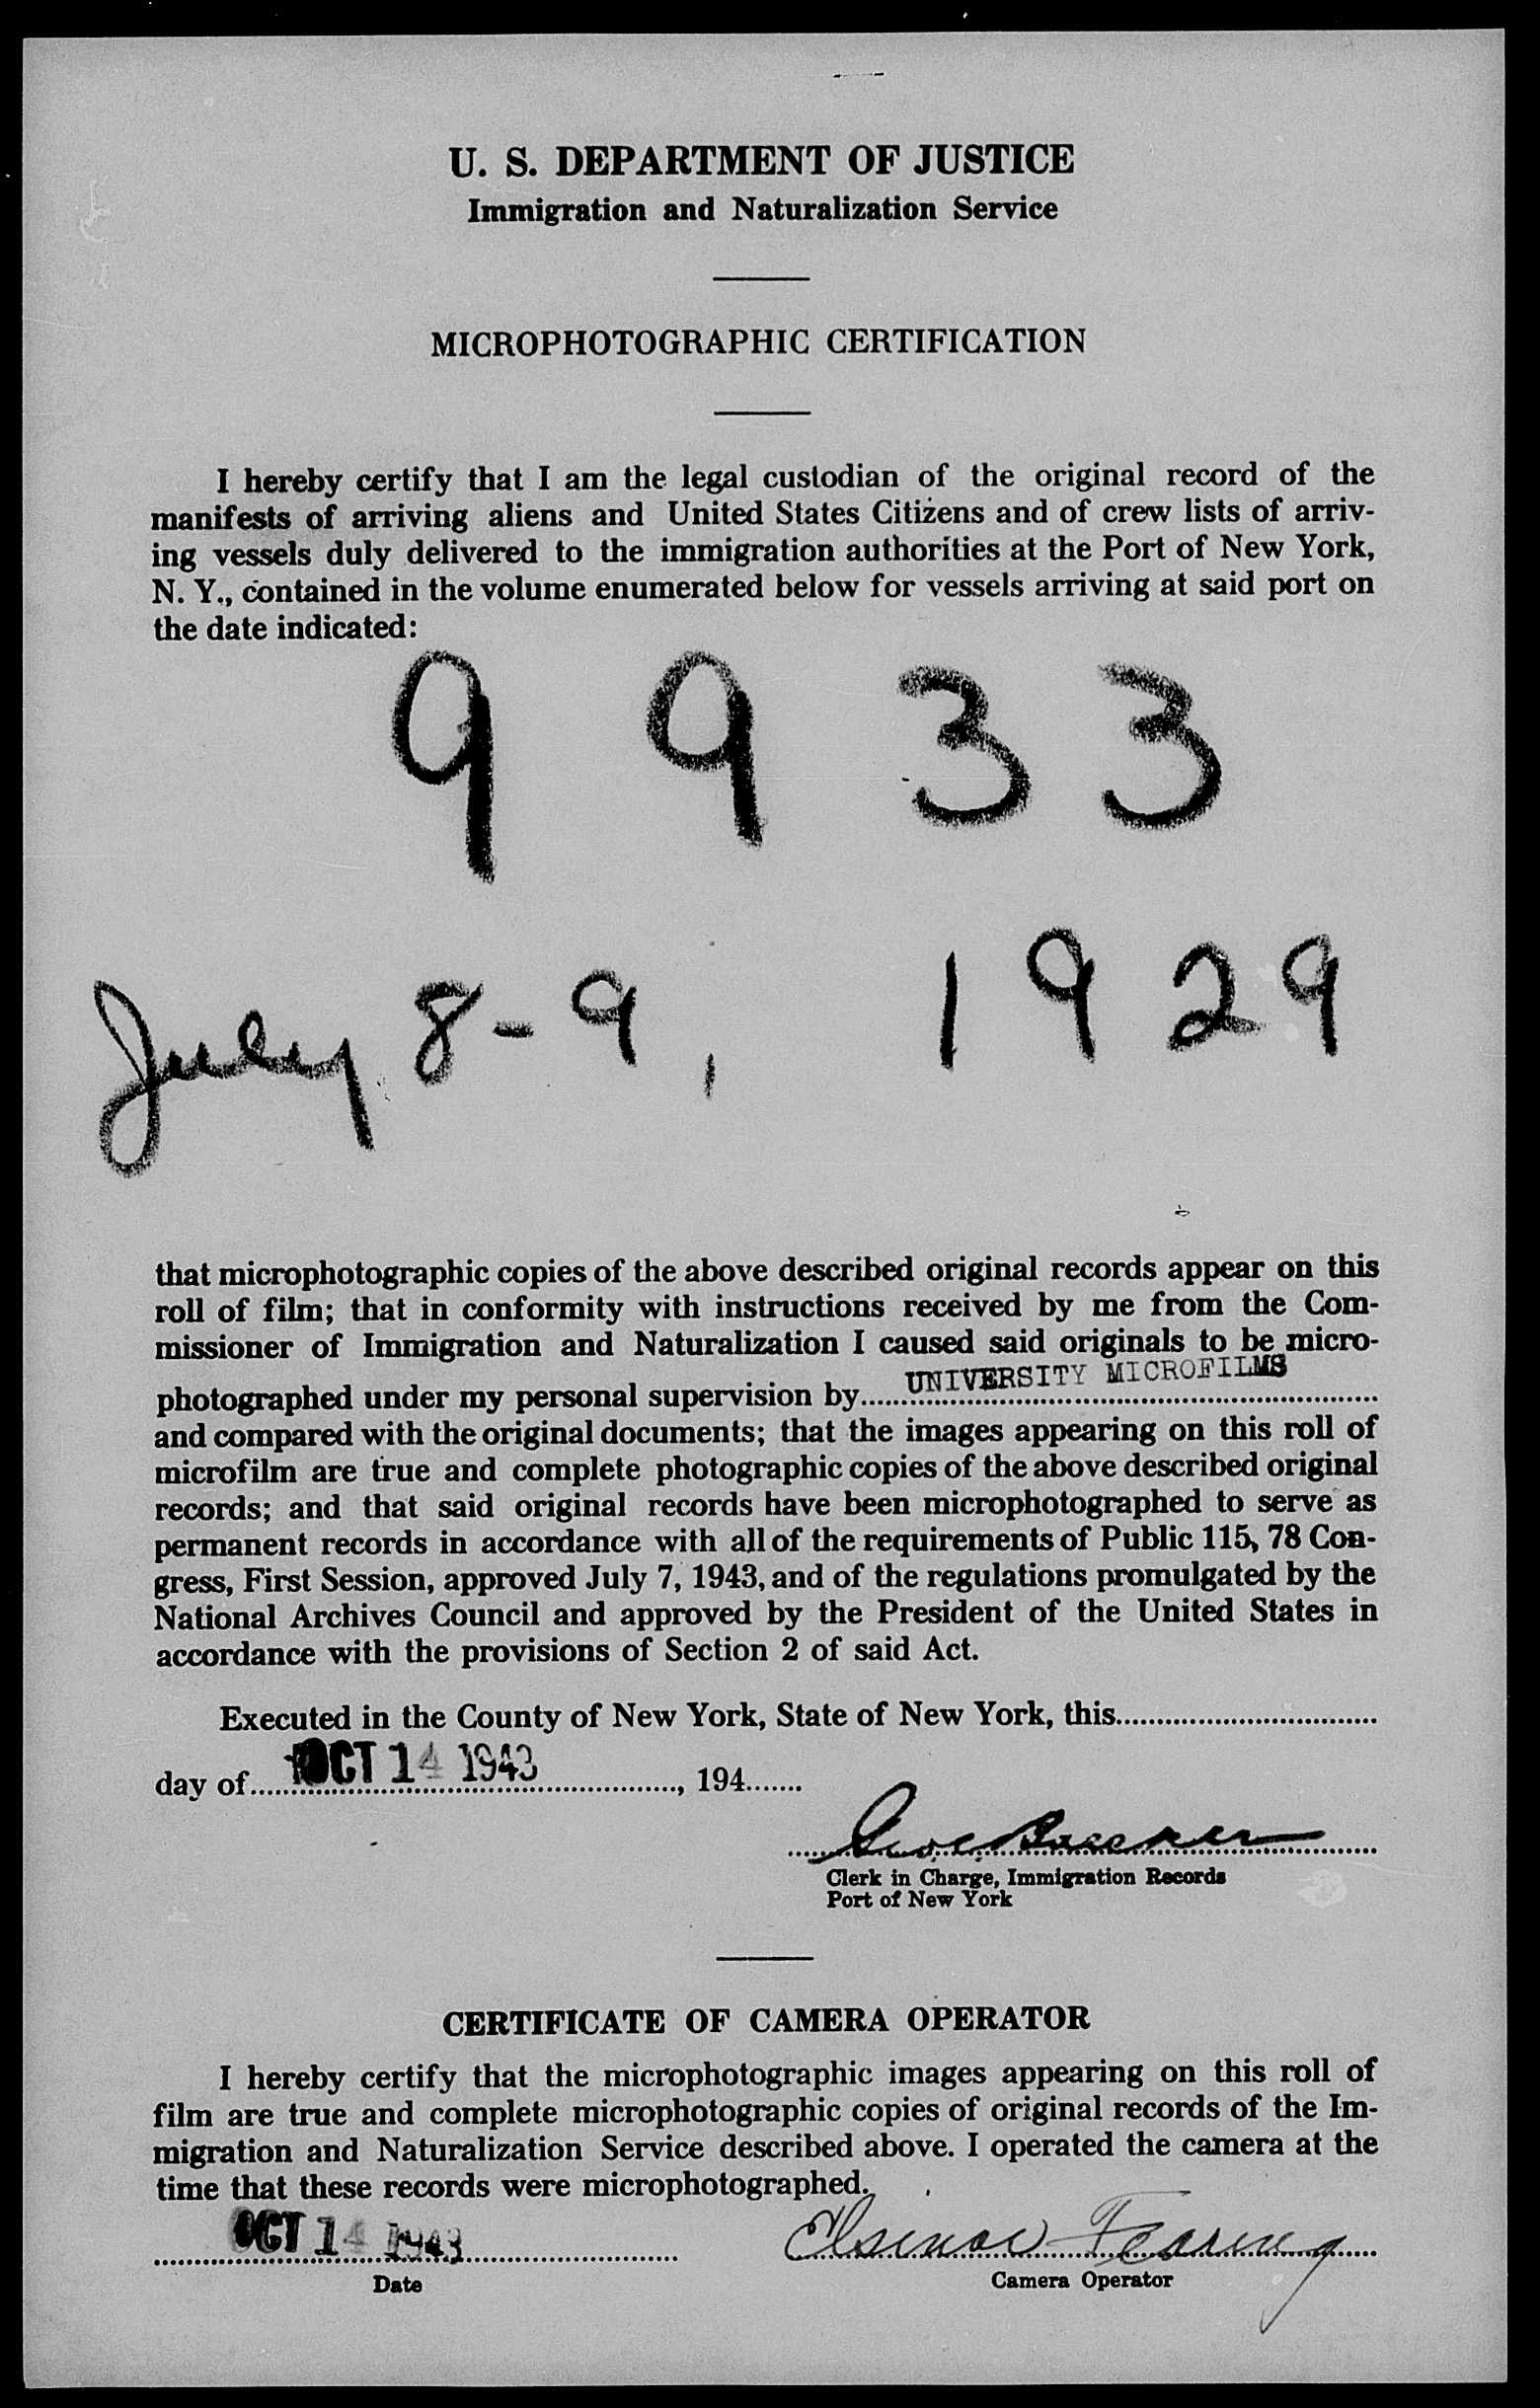 U. S. DEPARTMENT OF JUSTICE
Immigration and Naturalization Service
MICROPHOTOGRAPHIC CERTIFICATION
I hereby certify that I am the legal custodian of the original record of the
manifests of arriving aliens and United States Citizens and of crew lists of arriv-
ing vessels duly delivered to the immigration authorities at the Port of New York,
N. Y., contained in the volume enumerated below for vessels arriving at said port on
the date indicated:
9 9 3 3
July 8-9, 1929
that microphotographic copies of the above described original records appear on this
roll of film; that in conformity with instructions received by me from the Com-
missioner of Immigration and Naturalization I caused said originals to be micro-
photographed under my personal supervision by UNIVERSITY MICROFILMS
and compared with the original documents; that the images appearing on this roll of
microfilm are true and complete photographic copies of the above described original
records; and that said original records have been microphotographed to serve as
permanent records in accordance with all of the requirements of Public 115, 78 Con-
gress, First Session, approved July 7, 1943, and of the regulations promulgated by the
National Archives Council and approved by the President of the United States in
accordance with the provisions of Section 2 of said Act.
Executed in the County of New York, State of New York, this
day of OCT 14 1943, 194
Clerk in Charge, Immigration Records
Port of New York
CERTIFICATE OF CAMERA OPERATOR
I hereby certify that the microphotographic images appearing on this roll of
film are true and complete microphotographic copies of original records of the Im-
migration and Naturalization Service described above. I operated the camera at the
time that these records were microphotographed.
OCT 14 1943 Fearing
Date
Camera Operator